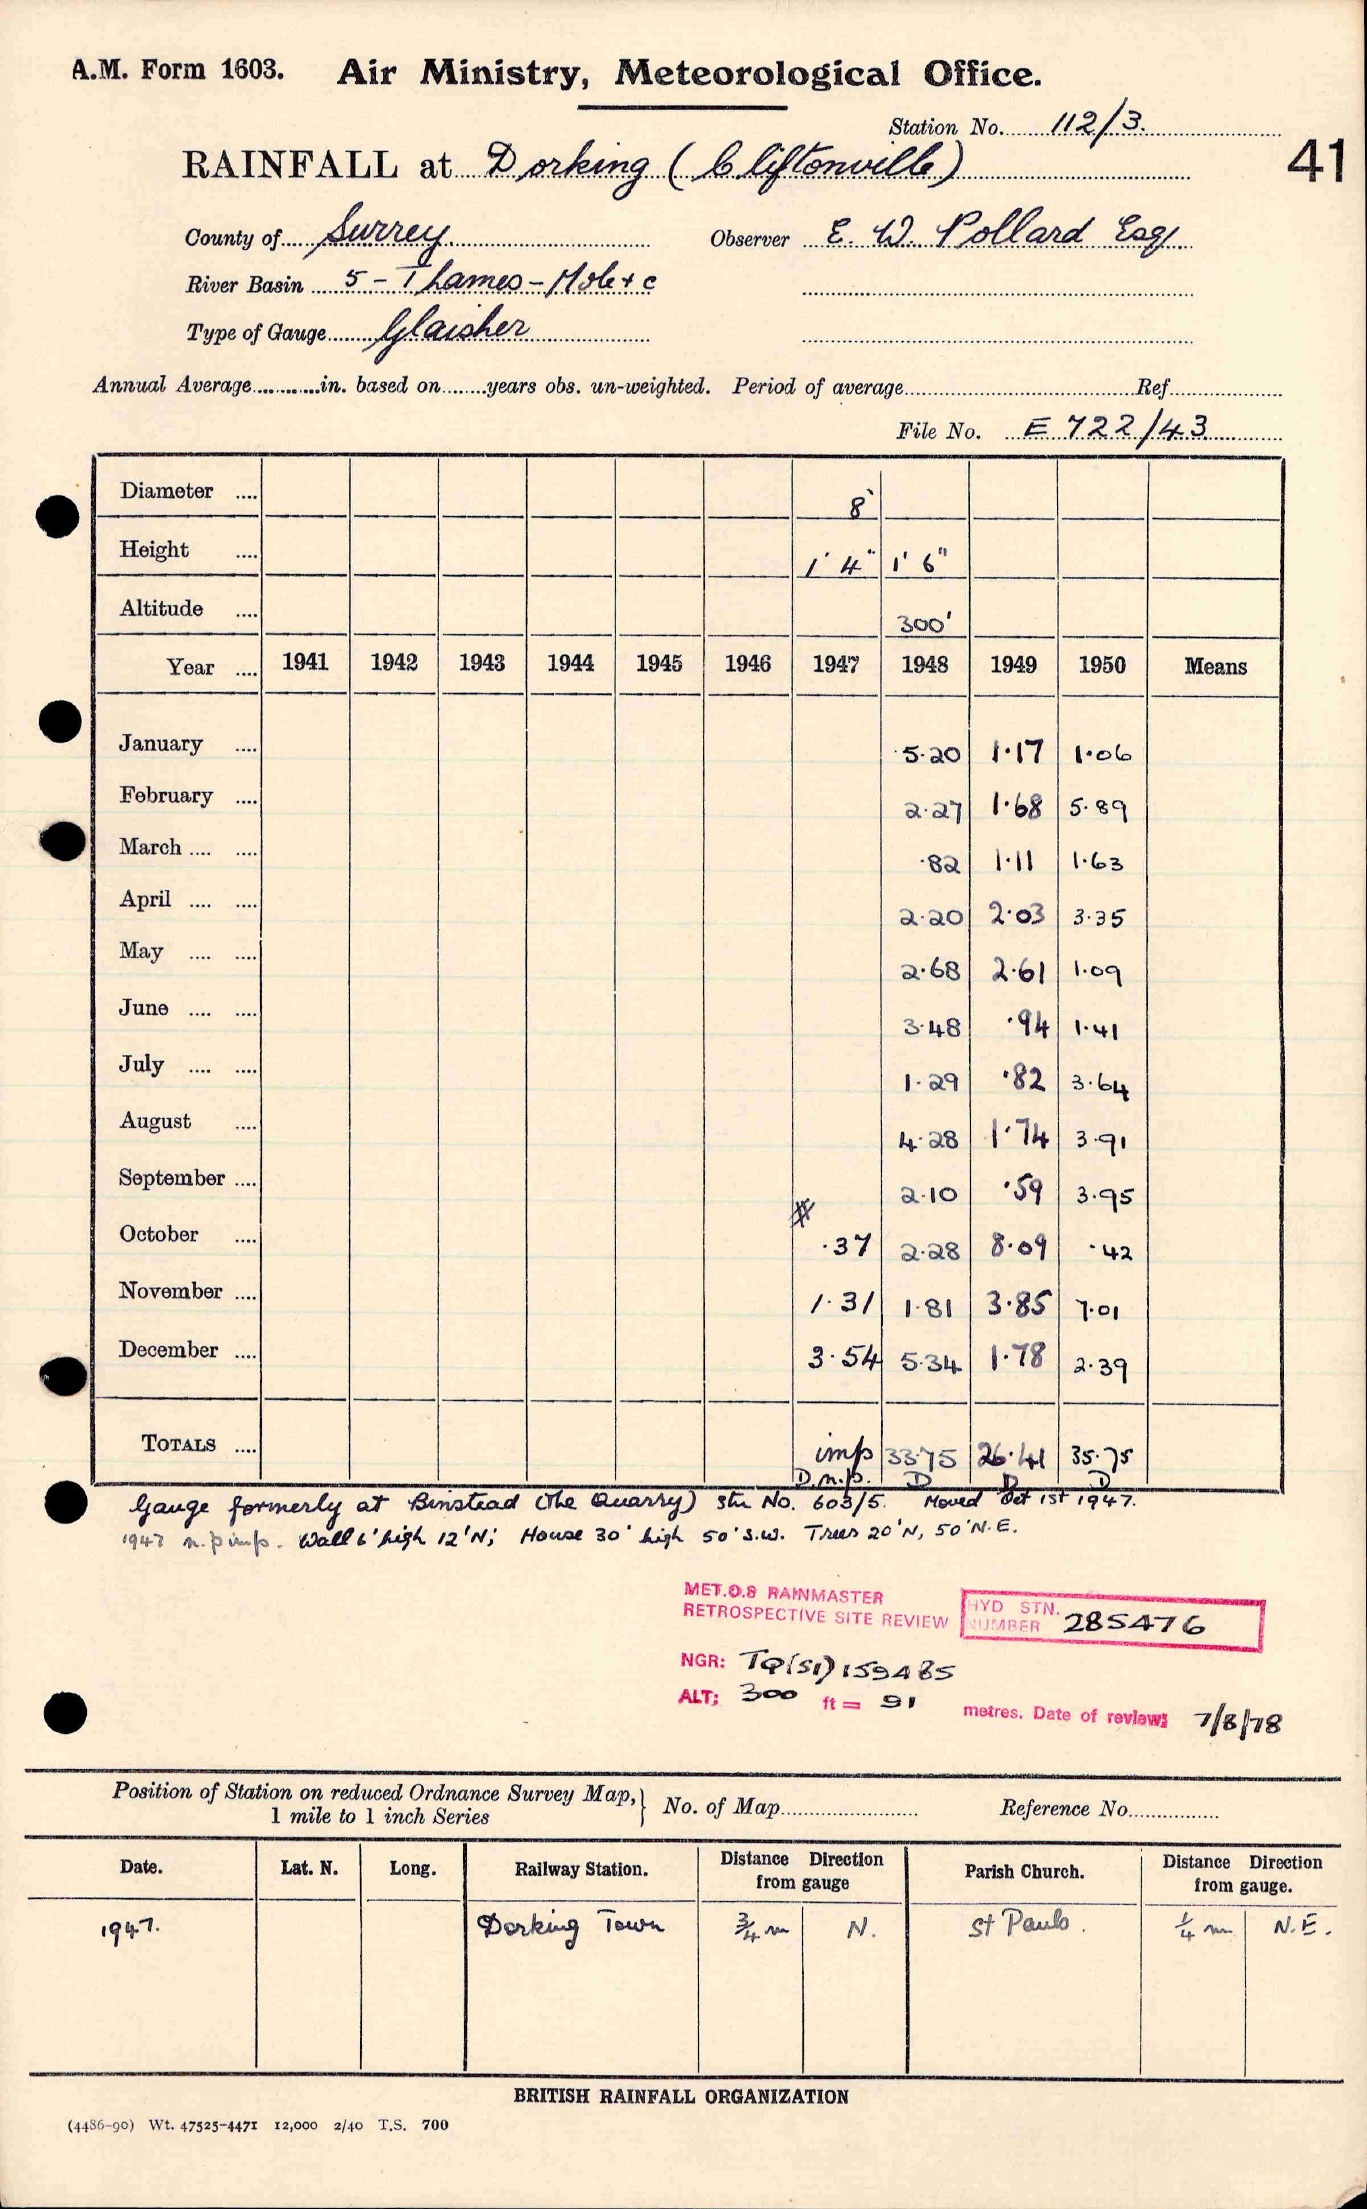 A.M. Form 1603. Air Ministry, Meteorological Office.
Station No. 112/3.
41
RAINFALL at Dorking (Cliftonville)
County of Surrey. Observer E. W. Pollard Esq
River Basin 5 - Thames - Mole + c
Type of Gauge Glaisher
Annual Average in. based on years obs. un-weighted. Period of average Ref
File No. E 722/43
Diameter 8"
Height 1' 4" 1' 6"
Altitude 300'
Year 1941 1942 1943 1944 1945 1946 1947 1948 1949 1950 Means
January 5.20 1.17 1.06
February 2.27 1.68 5.89
March .82 1.11 1.63
April 2.20 2.03 3.35
May 2.68 2.61 1.09
June 3.48 .94 1.41
July 1.29 .82 3.64
August 4.28 1.74 3.91
September 2.10 .59 3.95
October .37 2.28 8.09 .42
November 1.31 1.81 3.85 7.01
December 3.54 5.34 1.78 2.39
TOTALS imp 33.75 26.41 35.75
D.n.p. D D D
Gauge formerly at Binstead (The Quarry) Stn No. 603/5. Moved Oct 1st 1947.
1947 n.p imp. Wall 6' high 12'N; House 30' high 50' S.W. Trees 20'N, 50'N.E.
MET.O.8 RAINMASTER
RETROSPECTIVE SITE REVIEW
HYD STN. NUMBER 285476
NGR: TQ(51)159485
ALT: 300 ft = 91 metres. Date of review: 7/8/78
Position of Station on reduced Ordnance Survey Map,
1 mile to 1 inch Series } No. of Map Reference No.
Date. Lat. N. Long. Railway Station. Distance Direction from gauge Parish Church. Distance Direction from gauge.
1947. Dorking Town 3/4 m N. St Pauls. 1/4 m N.E.
BRITISH RAINFALL ORGANIZATION
(4486-90) Wt. 47525-4471 12,000 2/40 T.S. 700